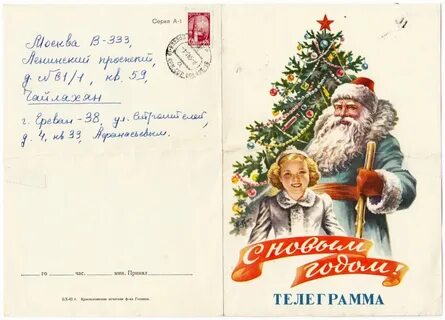 Серия А-1
Москва В-333,
Ленинский проспект,
д. № 81/1, кв. 59,
Чайлахян
г. Ереван - 38, ул. Строителей,
д. 4, кв 33, Афанасьевым.
го час. мин. Принял
С НОВЫМ
ГОДОМ!
ТЕЛЕГРАММА